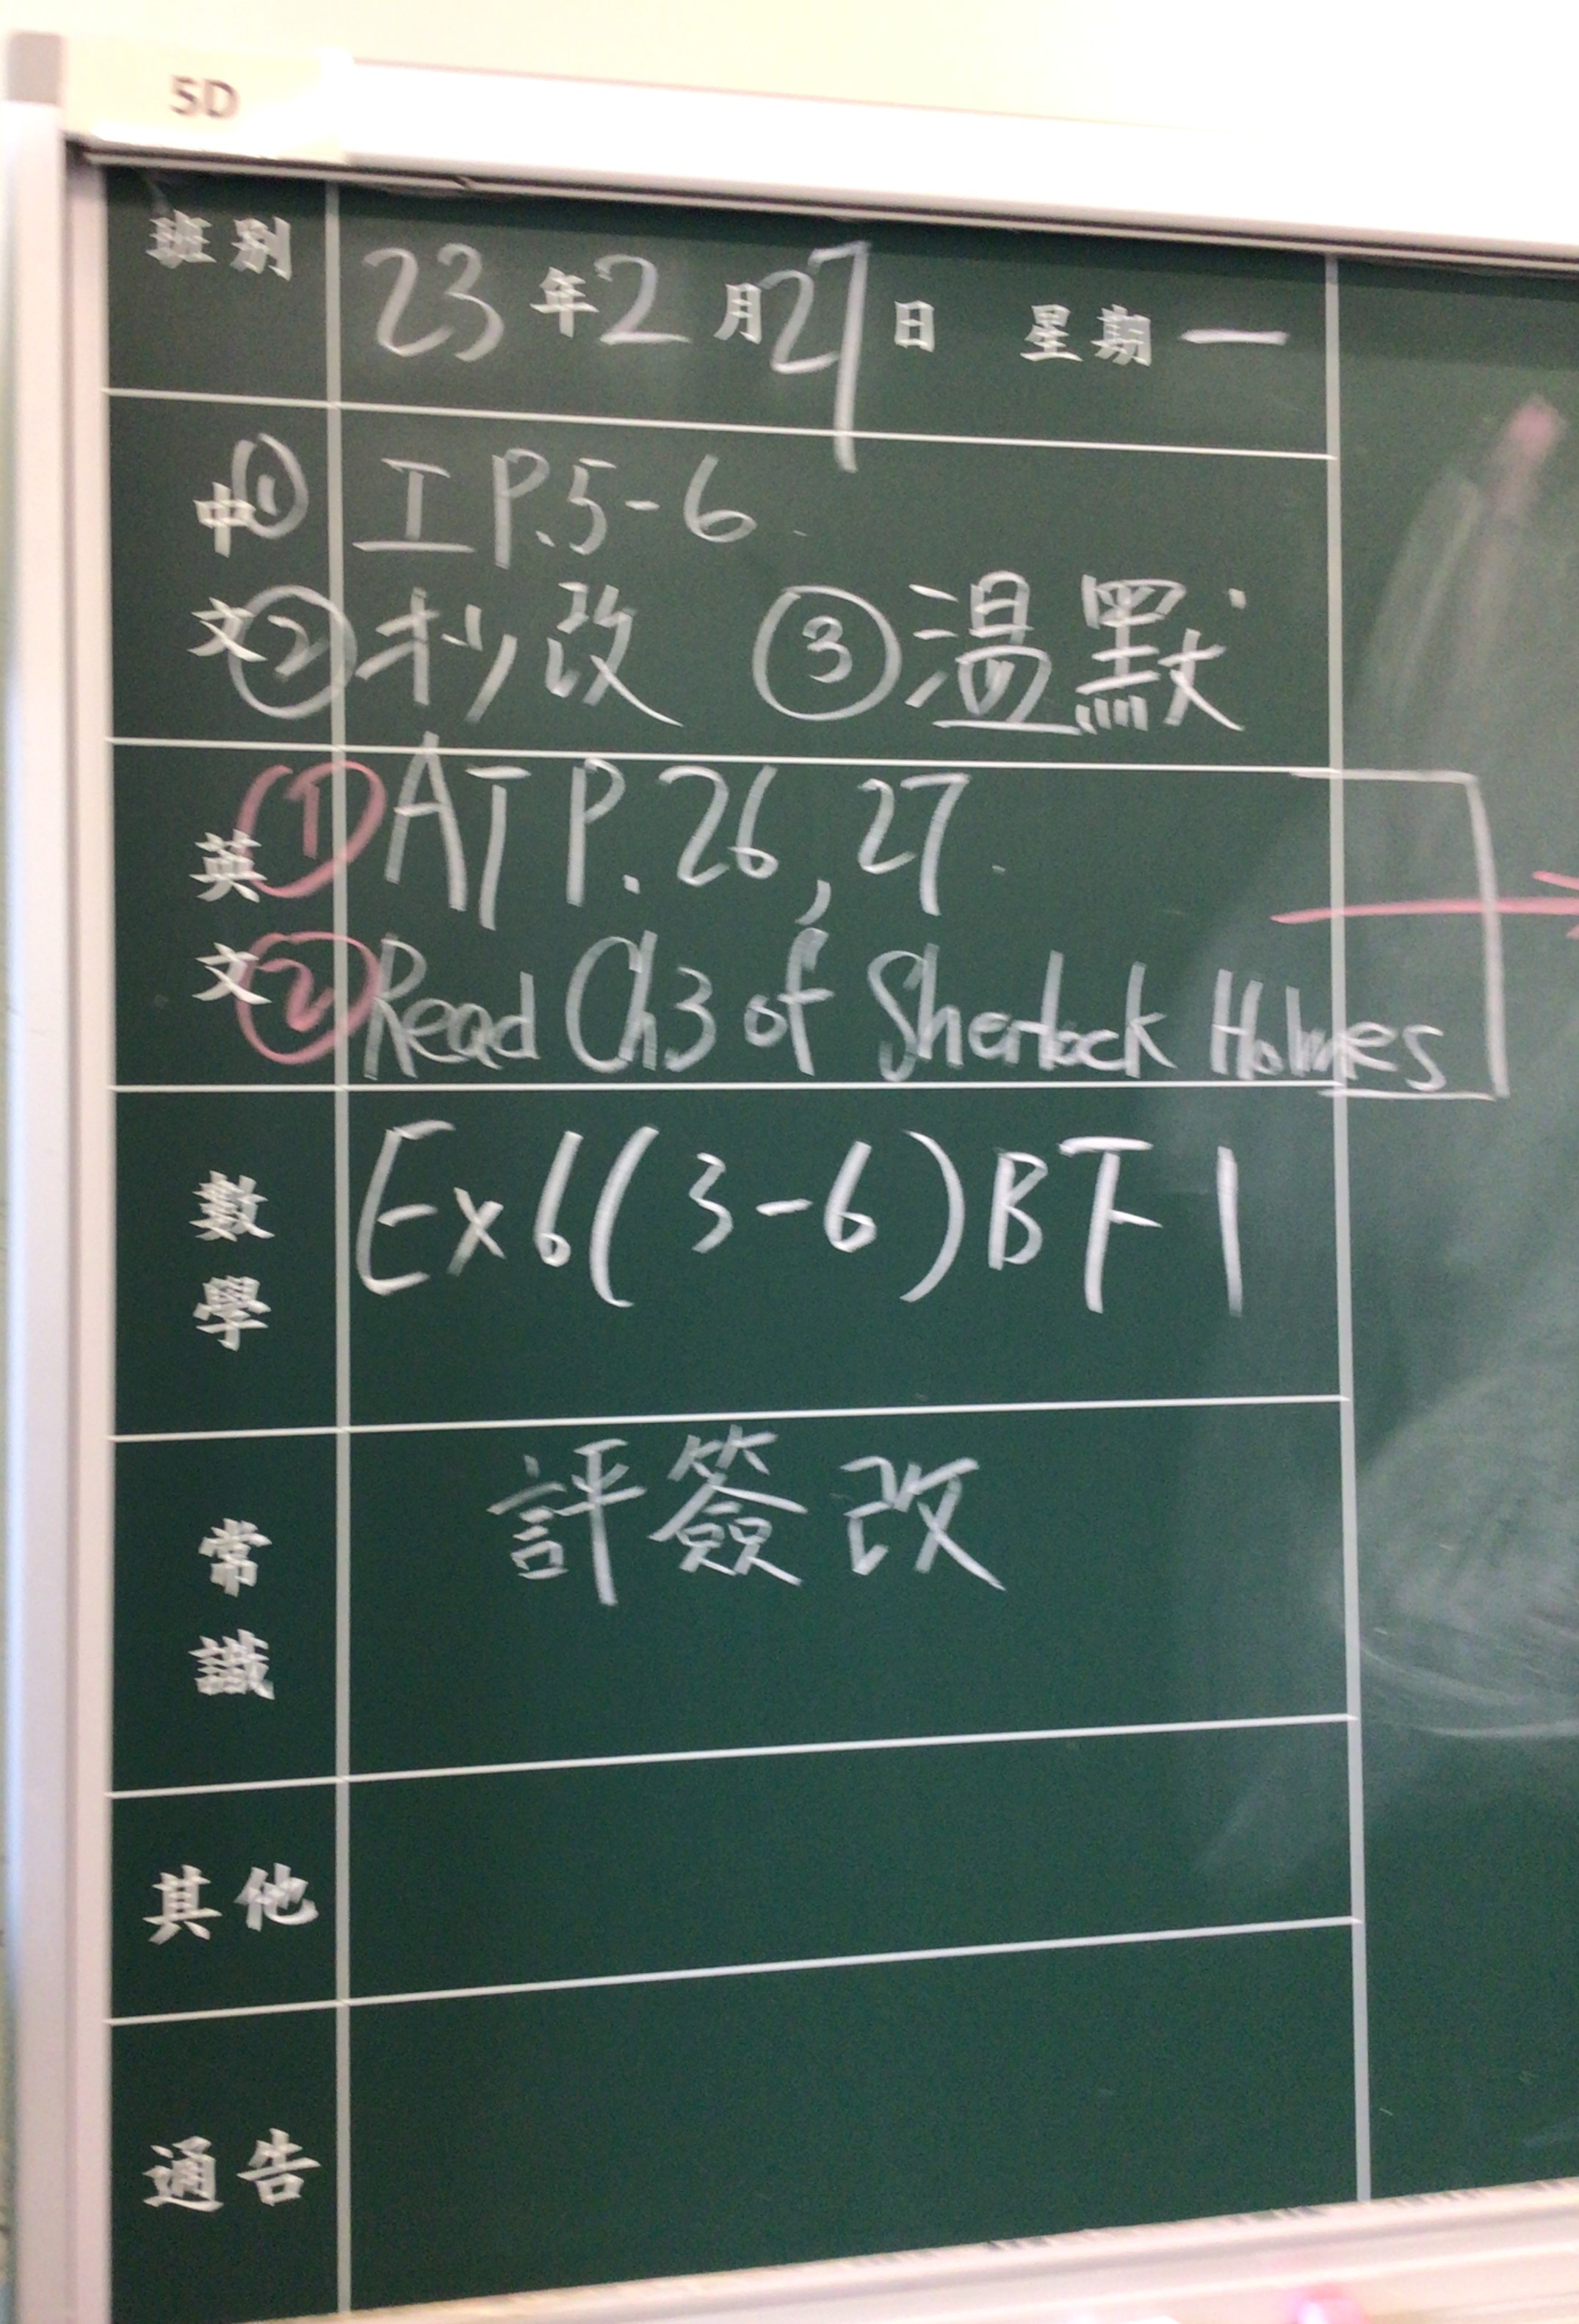 5D
班別 23年2月27日 星期一
中① 工 P.5-6
文② 抄改 ③溫默
英① AT P.26, 27
文② Read Ch3 of Sherlock Holmes
數學 Ex6(3-6)B下1
常識 評簽改
其他
通告